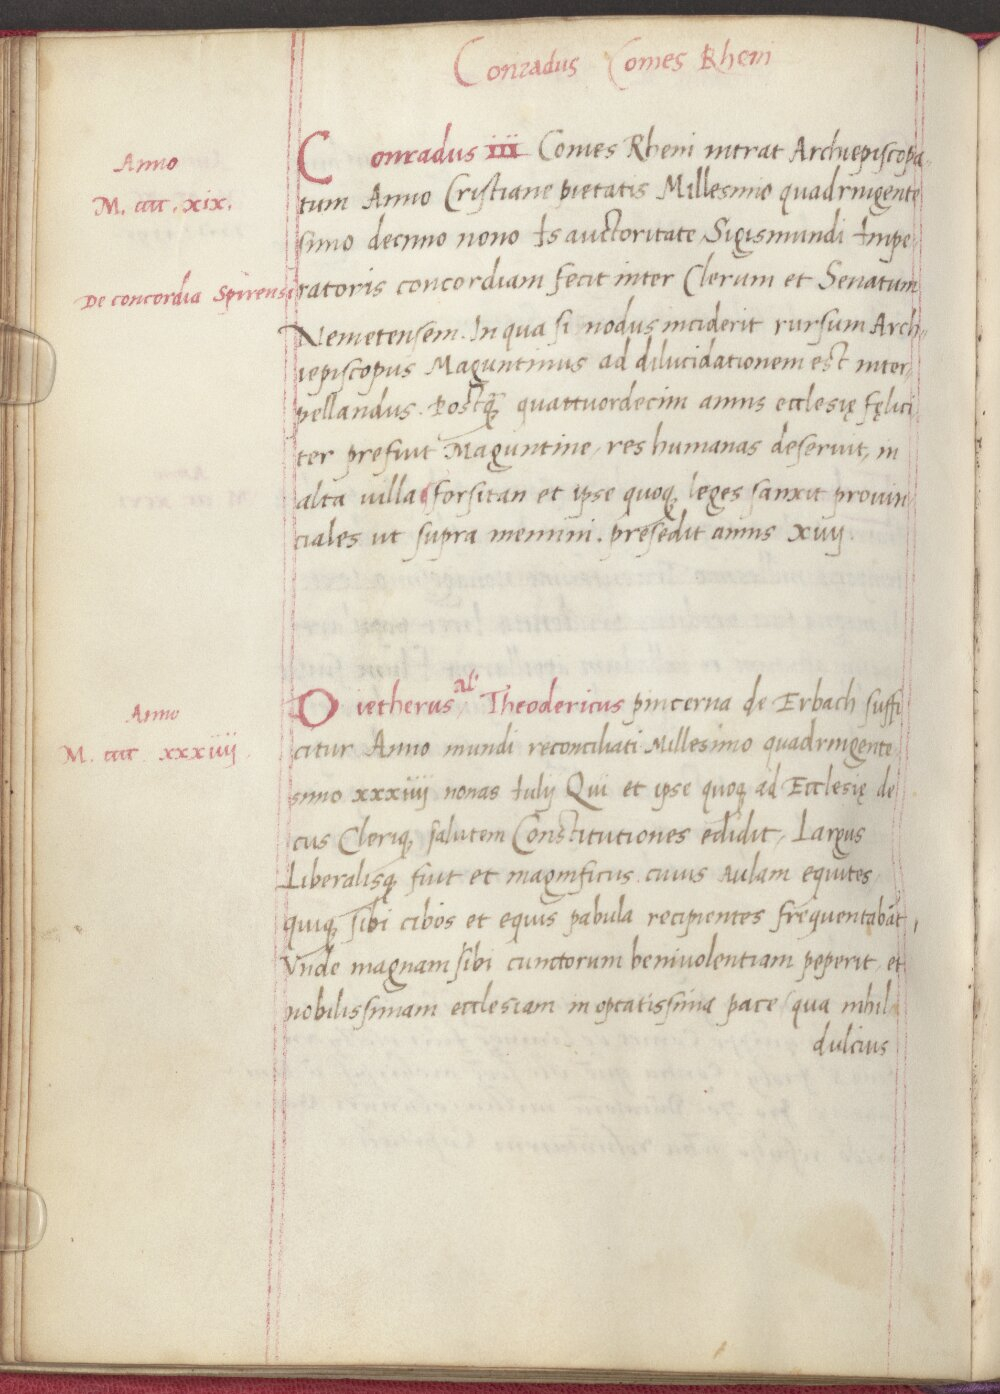 Conradus Comes Rheni
Anno
M. cccc. xix.
Conradus III Comes Rheni intrat Archiepiscopa-
tum Anno Cristiane pietatis Millesimo quadringente
simo decimo nono Is auctoritate Sigismundi Impe-
De concordia Spirensi
ratoris concordiam fecit inter Clerum et Senatum
Nemetensem. In qua si nodus inciderit rursum Arch-
iepiscopus Maguntinus ad dilucidationem est inter-
pellandus. Postq̃ quattuordecim annis ecclesię fęlici
ter prefuit Maguntine, res humanas deseruit, in
alta uilla (forsitan et ipse quoq; leges sanxit prouin
ciales ut supra memini. presedit annis xiiij
Anno
M. cccc xxxiiij.
Dietherus al' Theodericus pincerna de Erbach suffi
citur Anno mundi reconciliati Millesimo quadringente
simo xxxiiij nonas Iulij Qui et ipse quoq; ad Ecclesię de
cus Cleriq; salutem Constitutiones edidit, Largus
Liberalisq; fuit et magnificus cuius Aulam equites,
quiq; sibi cibos et equis pabula recipientes frequentabāt,
Vnde magnam sibi cunctorum beniuolentiam peperit, et
nobilissimam ecclesiam in optatissima pace (qua nihil
dulcius